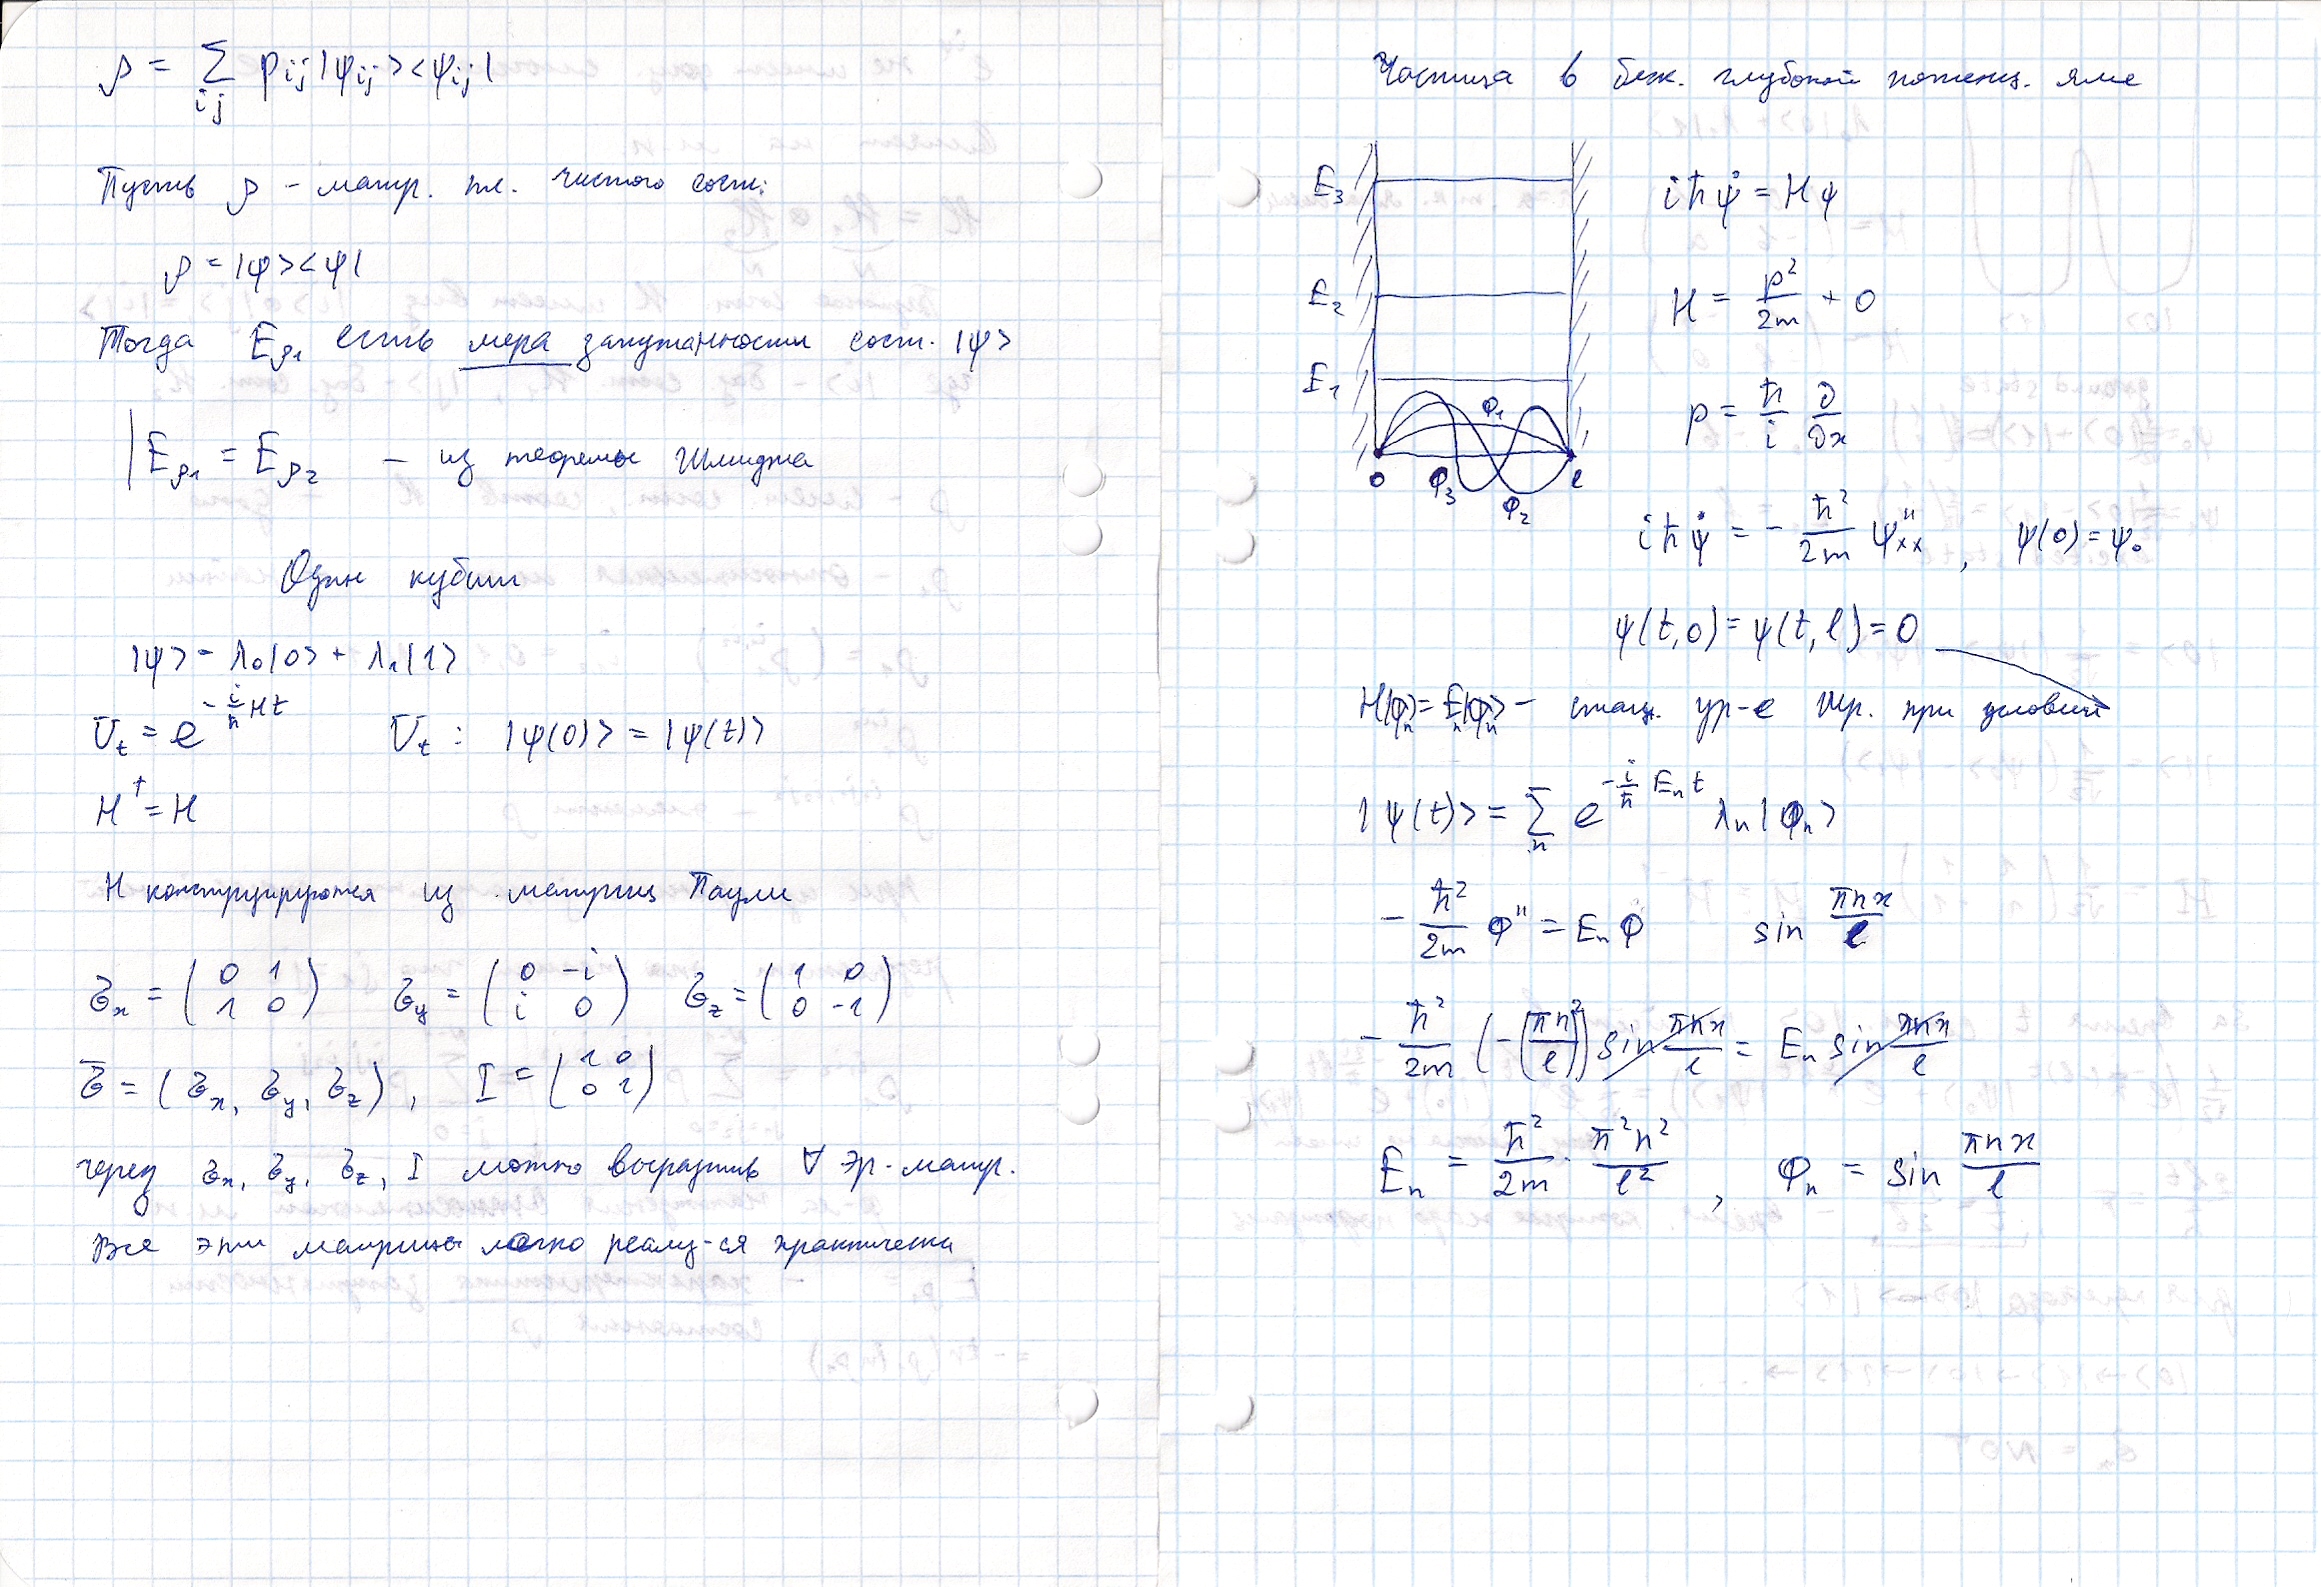 ρ = Σ_{ij} p_{ij} |ψ_{ij}><ψ_{ij}|
Пусть ρ - матр. пл. чистого сост:
ρ = |ψ><ψ|
Тогда E_{ρ1} есть мера запутанности сост. |ψ>
E_{ρ1} = E_{ρ2} - из теоремы Шмидта
Один кубит
|ψ> = λ₀|0> + λ₁|1>
U_t = e^{-i/ħ Ht} U_t : |ψ(0)> = |ψ(t)>
H† = H
H конструируются из матриц Паули
σ_x = (0 1; 1 0) σ_y = (0 -i; i 0) σ_z = (1 0; 0 -1)
σ̄ = (σ_x, σ_y, σ_z), I = (1 0; 0 1)
через σ_x, σ_y, σ_z, I можно выразить ∀ эр. матр.
Все эти матрицы легко реализ-ся практически
Частица в беск. глубокой потенц. яме
E₃
E₂
E₁
φ₁
0 φ₃ φ₂ l
iħψ̇ = Hψ
H = p²/2m + 0
p = ħ/i ∂/∂x
iħψ̇ = - ħ²/2m ψ''_{xx}, ψ(0) = ψ₀
ψ(t,0) = ψ(t,l) = 0
H|φ_n> = E_n|φ_n> - стац. ур-е Шр. при условии
|ψ(t)> = Σ_n e^{-i/ħ E_n t} λ_n |φ_n>
- ħ²/2m φ'' = E_n φ sin πnx/l
- ħ²/2m (-(πn/l)²) sin πnx/l = E_n sin πnx/l
E_n = ħ²/2m · π²n²/l², φ_n = sin πnx/l